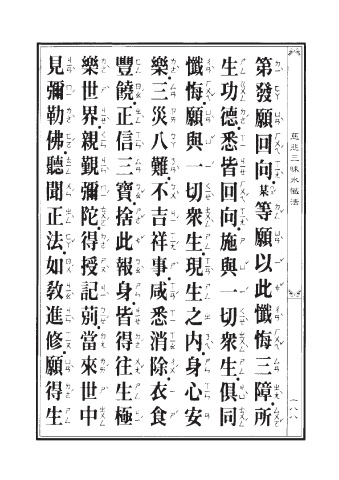 第發願回向某等願以此懺悔三障所
生功德悉皆回向施與一切眾生俱同
懺悔願與一切眾生現生之內身心安
樂三災八難不吉祥事咸悉消除衣食
豐饒正信三寶捨此報身皆得往生極
樂世界親覲彌陀得授記莂當來世中
見彌勒佛聽聞正法如教進修願得生
慈悲三昧水懺法
一八八